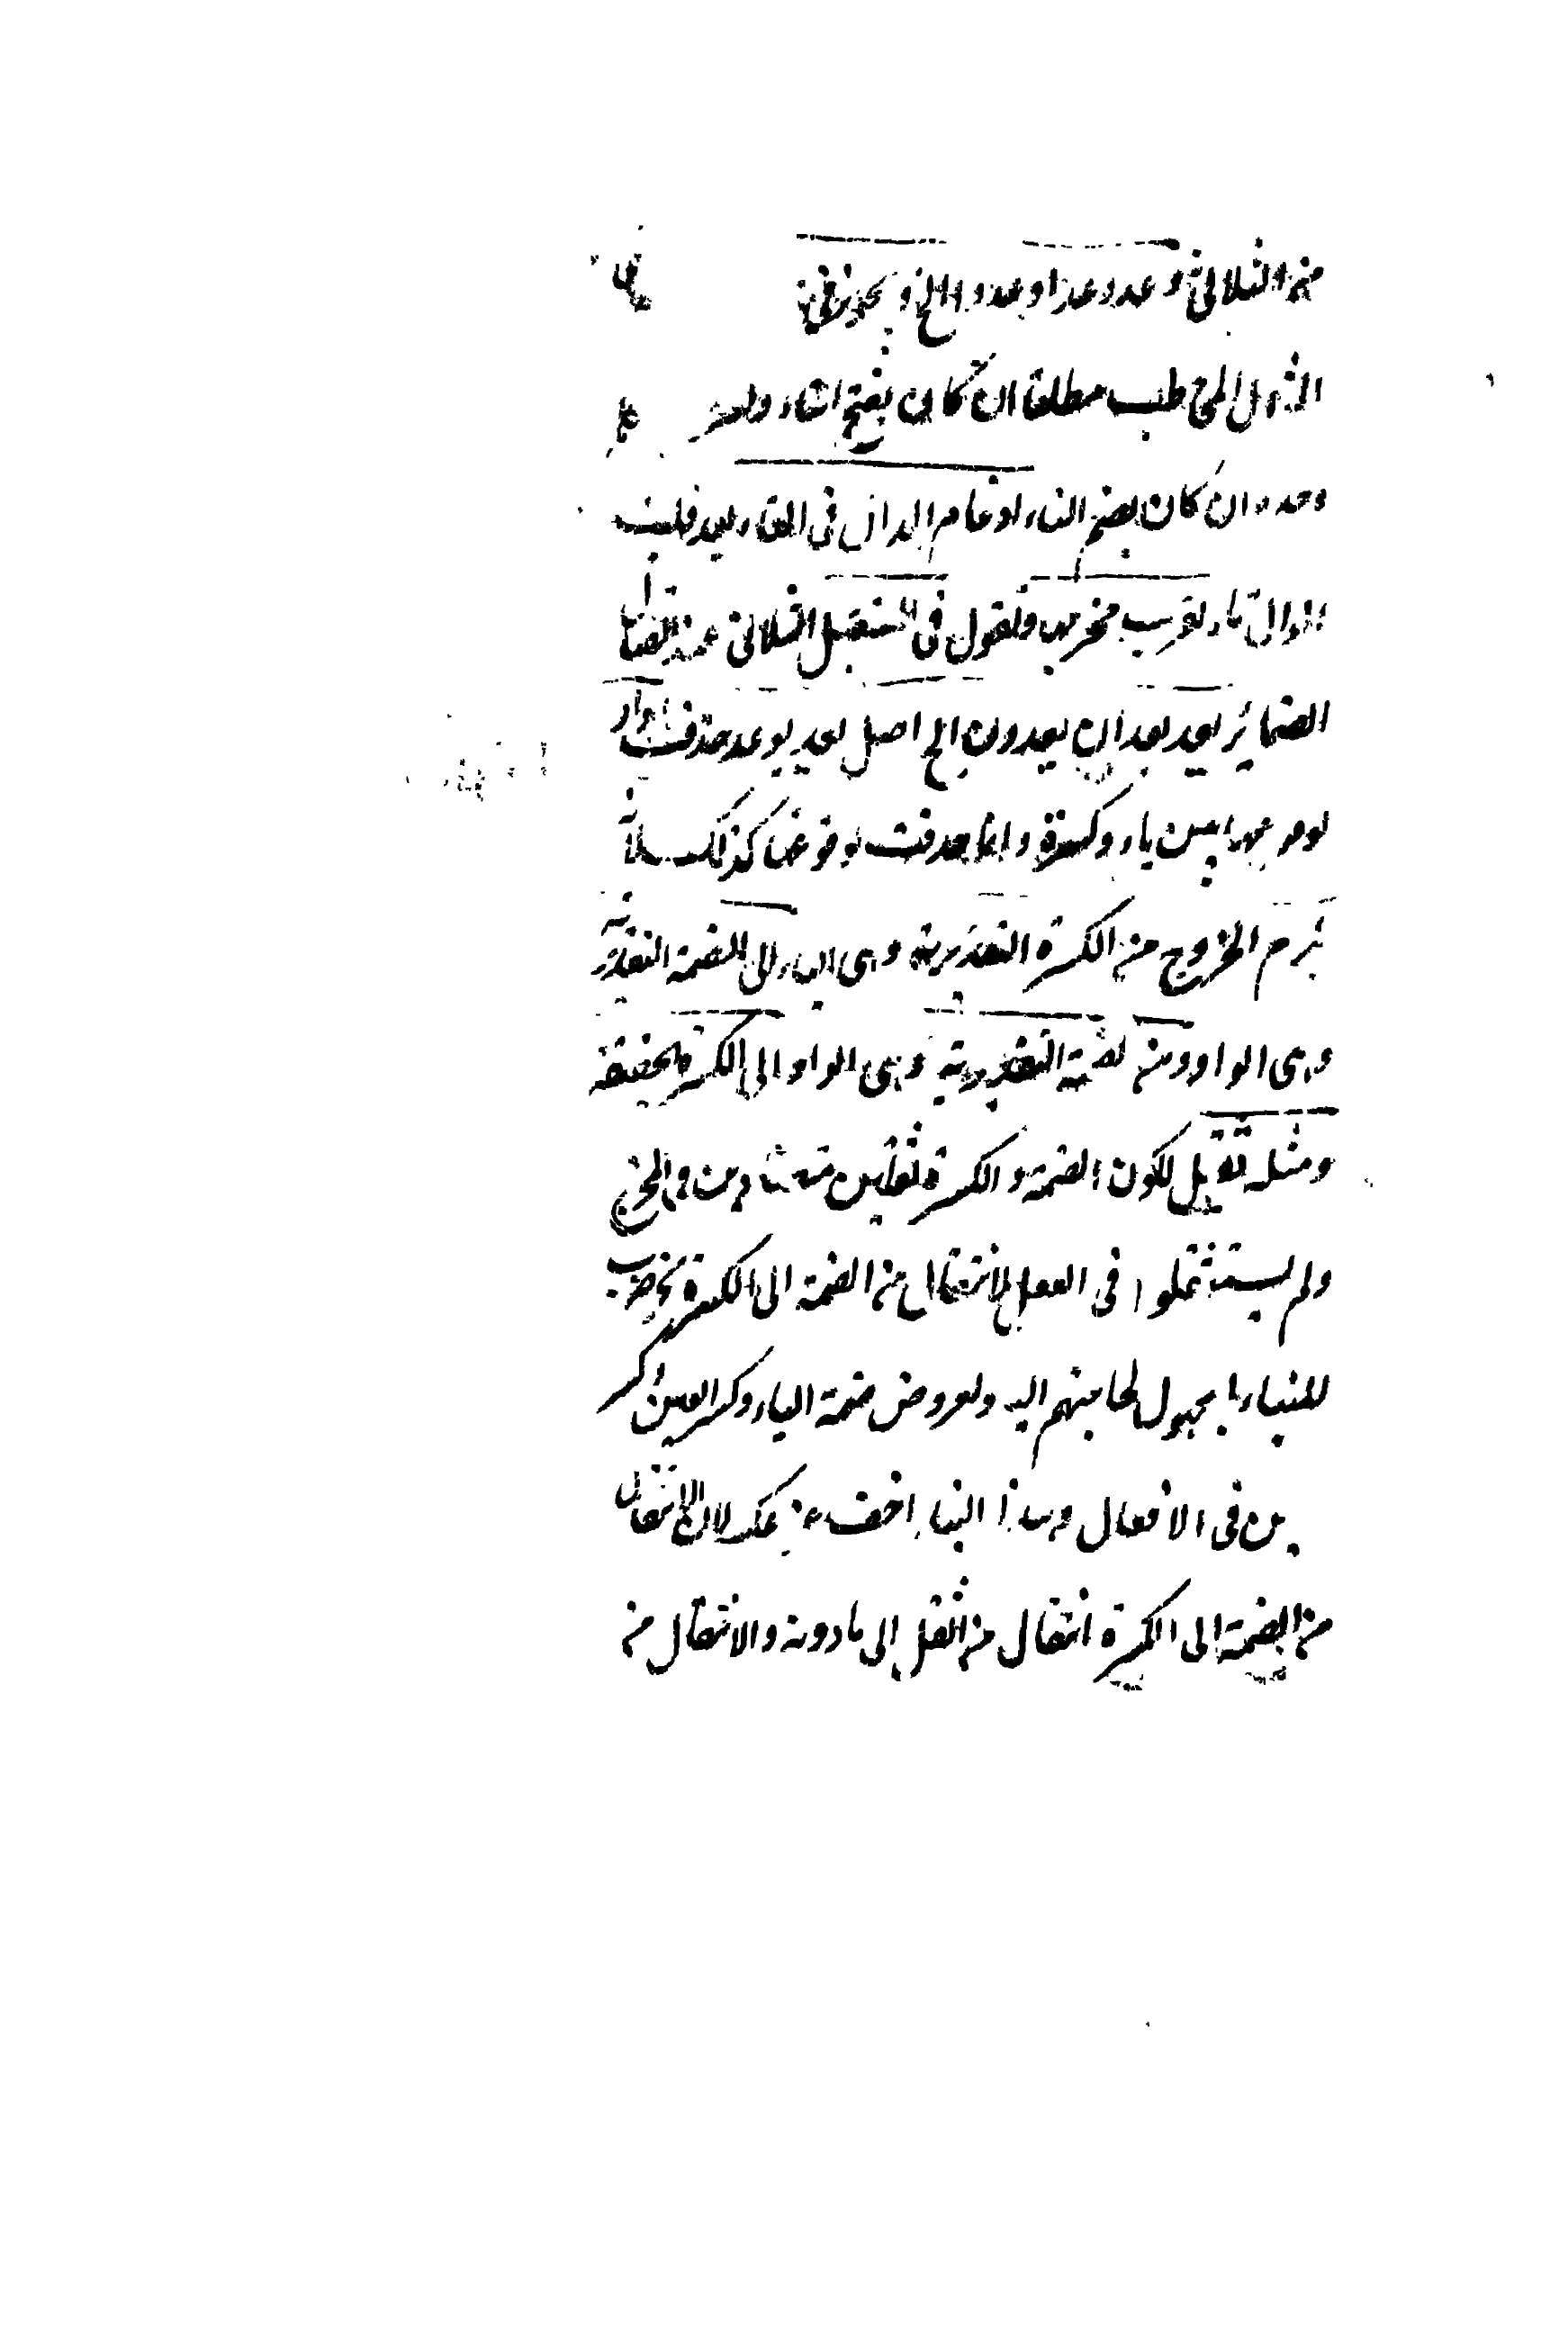 من الثلاثي وعد وعدا وعدوا الخ ويجوز في
المخاطب مطلقا ان كان بفتح التاء
وان كان بضم التاء ادغام الدال في التاء بعد قلب
الدال تاء لقرب مخرجهما وتقول في المستقبل الثلاثي
الضمائر يعد يعدان يعدون الخ اصل يعد يوعد حذفت الواو
لوقوعها بين ياء وكسرة وانما حذفت لوقوعها كذلك لئلا
يلزم الخروج من الكسرة التقديرية وهى الياء الى الضمة التقديرية
وهى الواو ومن الضمة التقديرية وهى الواو الى الكسرة الحقيقة
ومثله ثقيل لكون الضمة والكسرة ثقيلين في المخرج
ولم يستثقلوا في الفعل الانتقال من الضمة الى الكسرة نحو ضرب
للبناء المجهول لحاجتهم اليه ولعروض ضمة الياء وكسر العين
في الافعال وهذا البناء اخف من عكسه لان الانتقال
من الضمة الى الكسرة انتقال من اثقل الى ما دونه والانتقال من